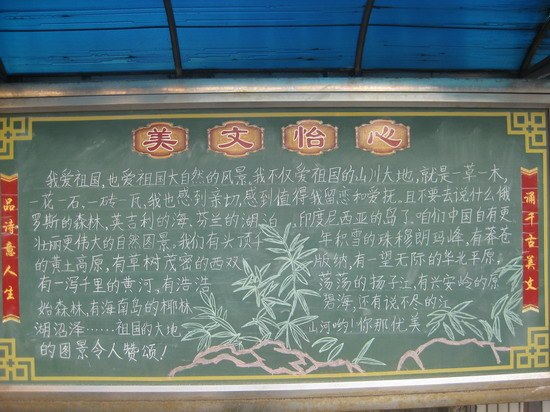 美文怡心
品诗意人生
诵千古美文
我爱祖国,也爱祖国大自然的风景,我不仅爱祖国的山川大地,就是一草一木,
一花一石、一砖一瓦,我也感到亲切,感到值得我留恋和爱抚。且不要去说什么俄
罗斯的森林,英吉利的海、芬兰的湖泊 印度尼西亚的岛了。咱们中国自有更
壮丽更伟大的自然图景。我们有头顶千 年积雪的珠穆朗玛峰,有莽苍
的黄土高原,有草树茂密的西双 版纳,有一望无际的华北平原,
有一泻千里的黄河,有浩浩 荡荡的扬子江,有兴安岭的原
始森林,有海南岛的椰林 碧海,还有说不尽的江
湖沼泽……祖国的大地 山河哟!你那优美
的图景令人赞颂!